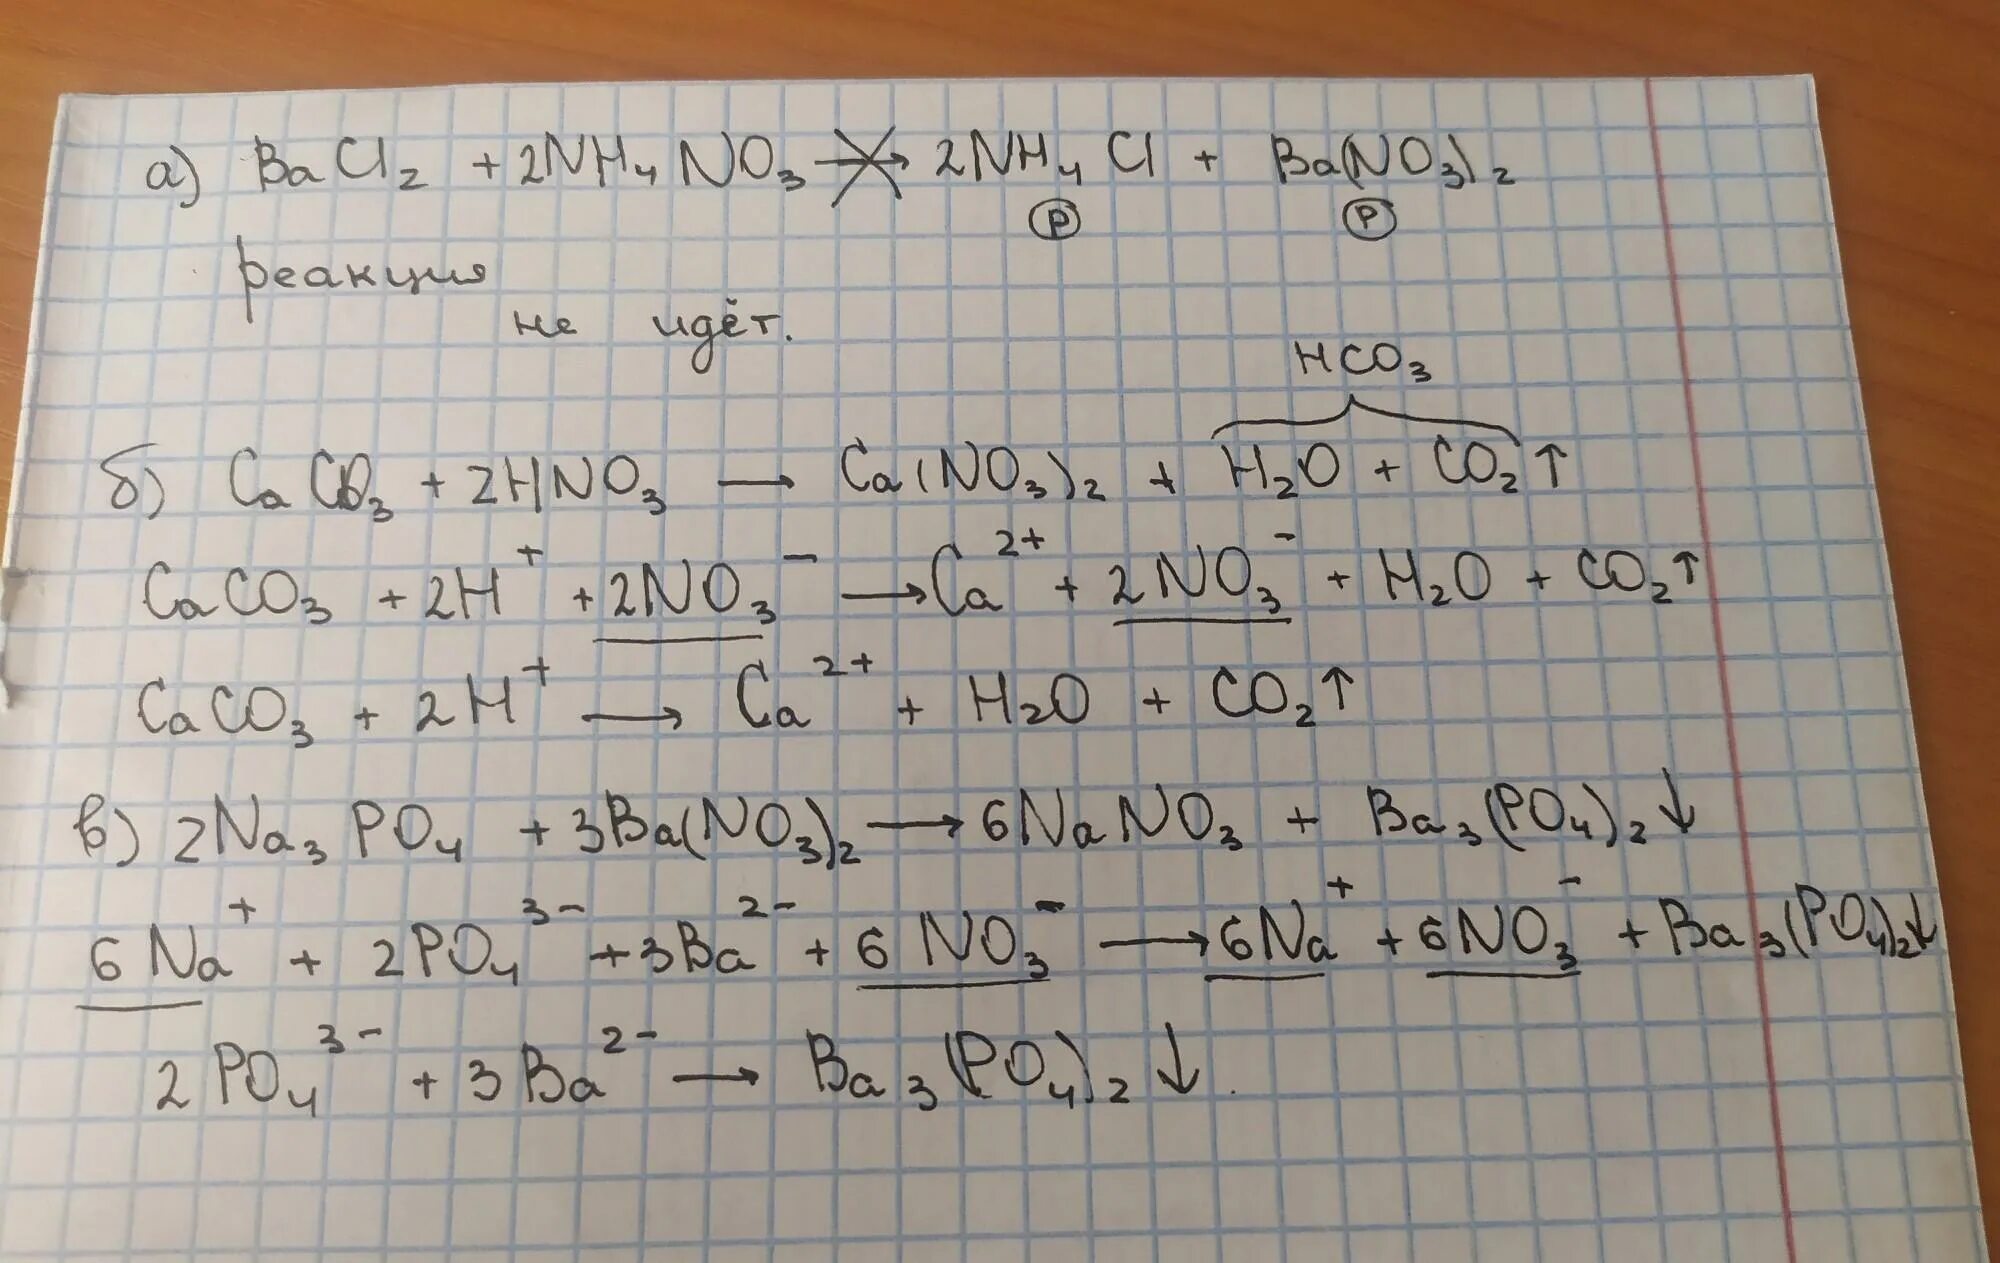 а) BaCl₂ + 2NH₄NO₃ → 2NH₄Cl + Ba(NO₃)₂
р р
реакция
не идёт.
HCO₃
б) CaCO₃ + 2HNO₃ → Ca(NO₃)₂ + H₂O + CO₂↑
CaCO₃ + 2H⁺ + 2NO₃⁻ → Ca²⁺ + 2NO₃⁻ + H₂O + CO₂↑
CaCO₃ + 2H⁺ → Ca²⁺ + H₂O + CO₂↑
в) 2Na₃PO₄ + 3Ba(NO₃)₂ → 6NaNO₃ + Ba₃(PO₄)₂↓
6Na⁺ + 2PO₄³⁻ + 3Ba²⁻ + 6NO₃⁻ → 6Na⁺ + 6NO₃⁻ + Ba₃(PO₄)₂↓
2PO₄³⁻ + 3Ba²⁻ → Ba₃(PO₄)₂↓.